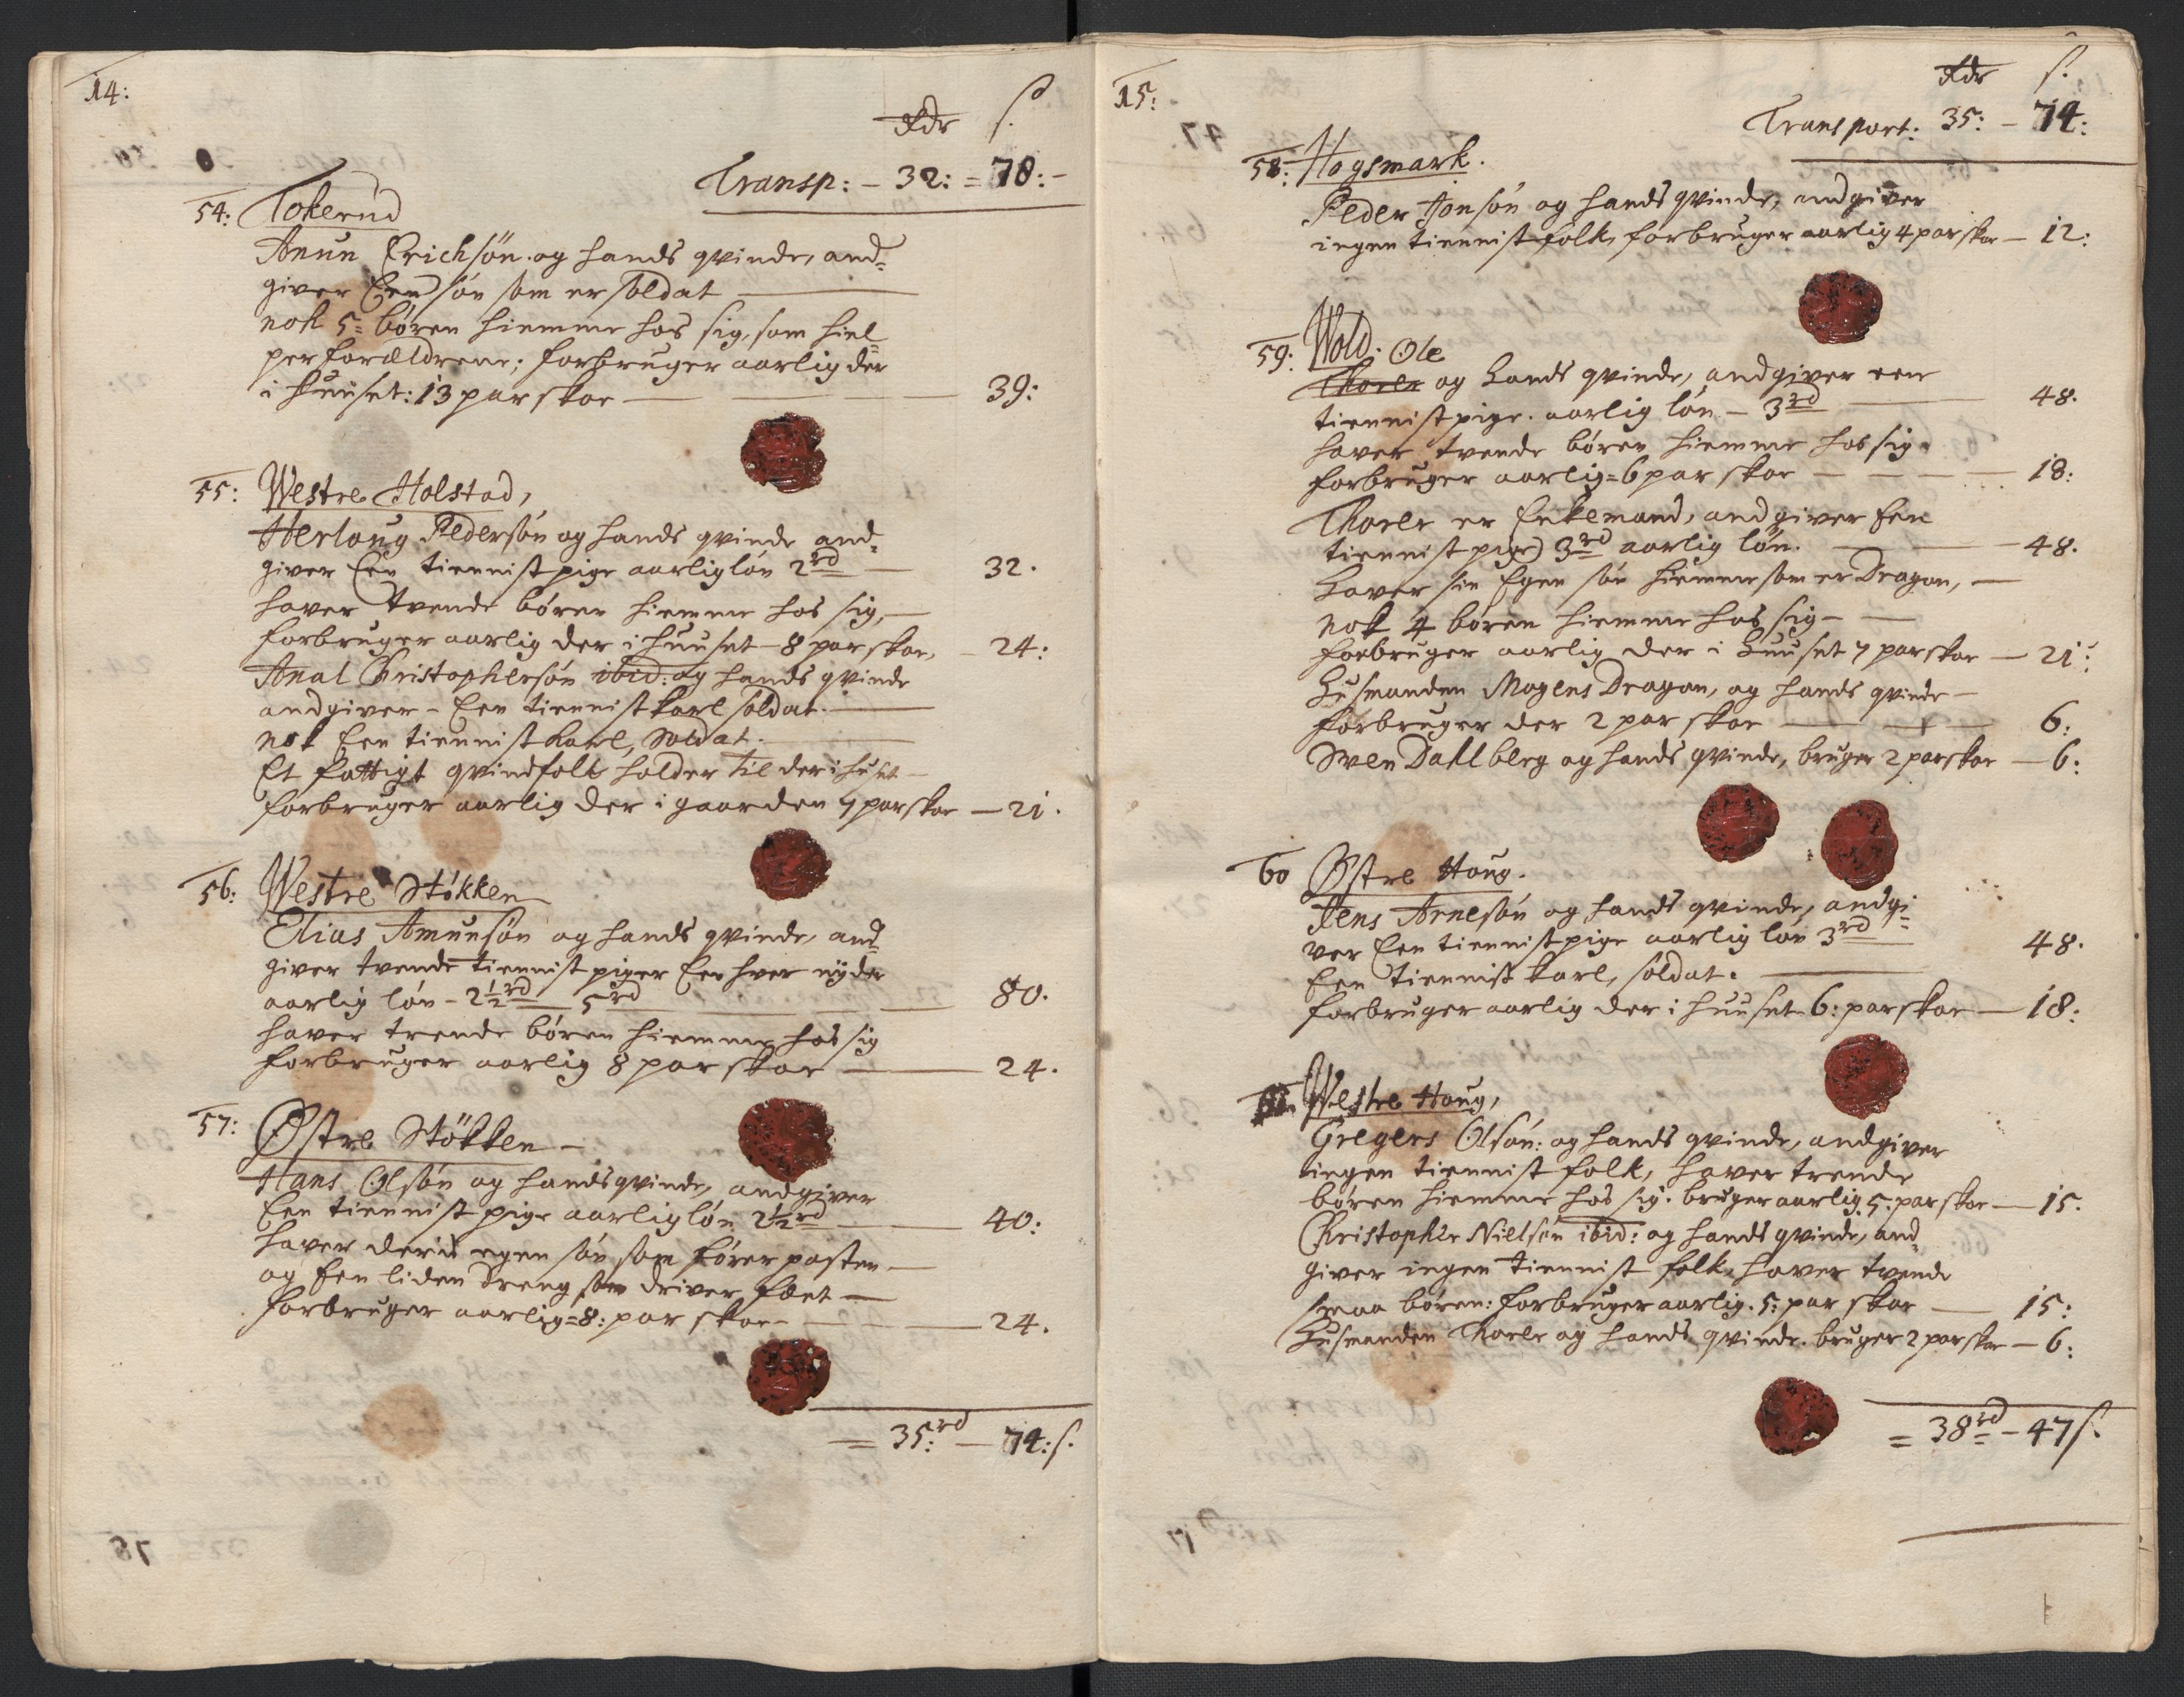 14:
Rdr s.
Transp: – 32: = 78: –
54: Tokerud
Anun Erichsøn og hands qvinde, and=
giver Een søn som er soldat
nok 5 = børen hiemme hos sig, som hiel=
per forældrene; forbruger aarlig der
i huuset: 13 par skoe — 39:
55: Westre Holstad,
Herloug Pedersøn og hands qvinde and=
giver Een tiennist pige aarlig løn 2 rd — 32.
haver tvende børen hiemme hos sig, —
forbruger aarlig der i huuset – 8 par skoe, – 24:
Christophersøn ibid: og hands qvinde
andgiver – Een tiennist karl soldat. —
nok Een tiennist karl, soldat.
Et fattigt qvindfolk holder til der i huset —
forbruger aarlig der i gaarden 7 par skoe — 21.
56: Westre Støkken
Elias Amunsøn og hands qvinde, and=
giver tvende tiennist piger Een hver nyder
aarlig løn – 2½ rd 5 rd — 80.
haver trende børen hiemme hos sig
forbruger aarlig 8 par skoe — 24.
57: Østre Støkken –
Hans Olsøn og hands qvinde, andgiver
Een tiennist pige aarlig løn 2½ rd — 40:
haver deris egen søn som fører posten —
og Een liden dreng som driver fæet —
forbruger aarlig = 8: par skoe – — 24.
= 35: rd – 74: s.
15:
Rdr s.
Transport: 35: – 74:
58: Hogsmark.
Peder Jonsøn og hands qvinde, andgiver
ingen tiennist folk, forbruger aarlig 4 par skoe — 12:
59: Wold. Ole
Thorer og hands qvinde, andgiver een
tiennist pige. aarlig løn – 3 rd — 48.
haver tvende børen hiemme hos sig.
forbruger aarlig = 6 par skoe — 18:
Thorer er Enkemand, andgiver Een
tiennist pige 3 rd aarlig løn. — 48.
haver sin Egen søn hiemme som er Dragon, —
nok 4 børen hiemme hos sig —
forbruger aarlig der i huuset 7 par skoe — 21:
husmanden Mogens Dragon, og hands qvinde —
forbruger der 2 par skoe — 6:
Swen Dahlberg og hands qvinde, bruger 2 par skoe — 6:
60 Østre Houg.
Jens Arnesøn og hands qvinde, andgi=
ver Een tiennist pige aarlig løn 3 rd — 48.
Een tiennist karl, soldat.
forbruger aarlig der i huuset 6: par skoe — 18:
Westre Houg,
Gregers Olsøn: og hands qvinde, andgiver
ingen tiennist folk, haver trende
børen hiemme hos sig. bruger aarlig 5: par skoe — 15.
Christopher Nielsøn ibid: og hands qvinde, and=
giver ingen tiennist folk, haver tvende
smaa børen: forbruger aarlig. 5: par skoe — 15:
husmanden Thorer og hands qvinde. bruger 2 par skoe — 6:
= 38 rd – 47 s.